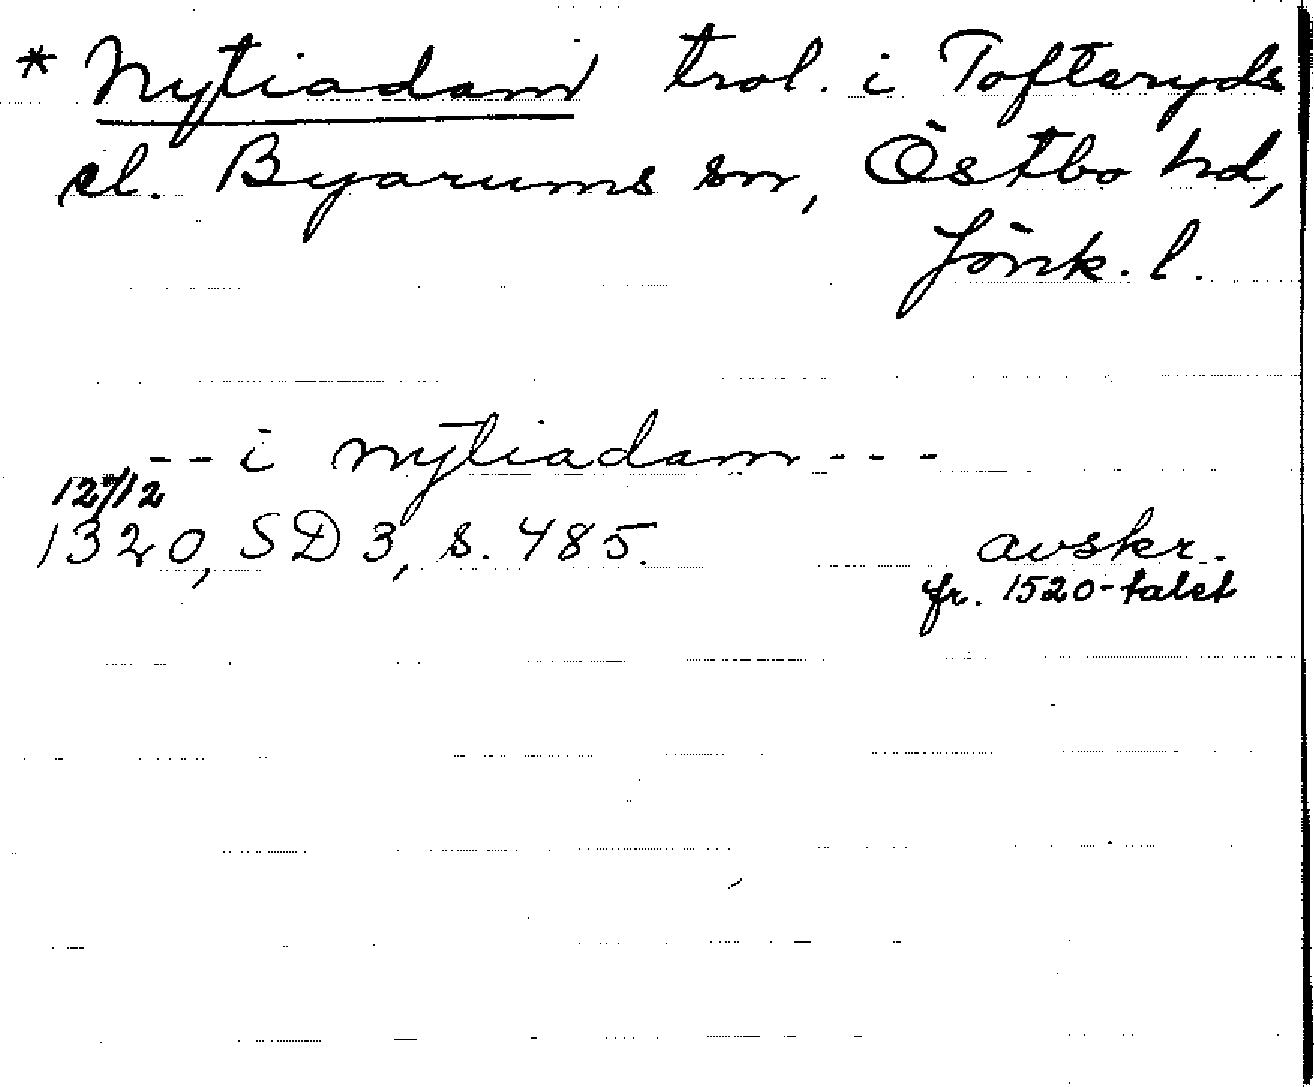 * Nytiadam trol. i Tofteryds
el. Byarums sn, Östbo hd,
Jönk. l.
-- i nytiadam ---
12/12
1320, SD 3, s. 485. avskr.
fr. 1520-talet